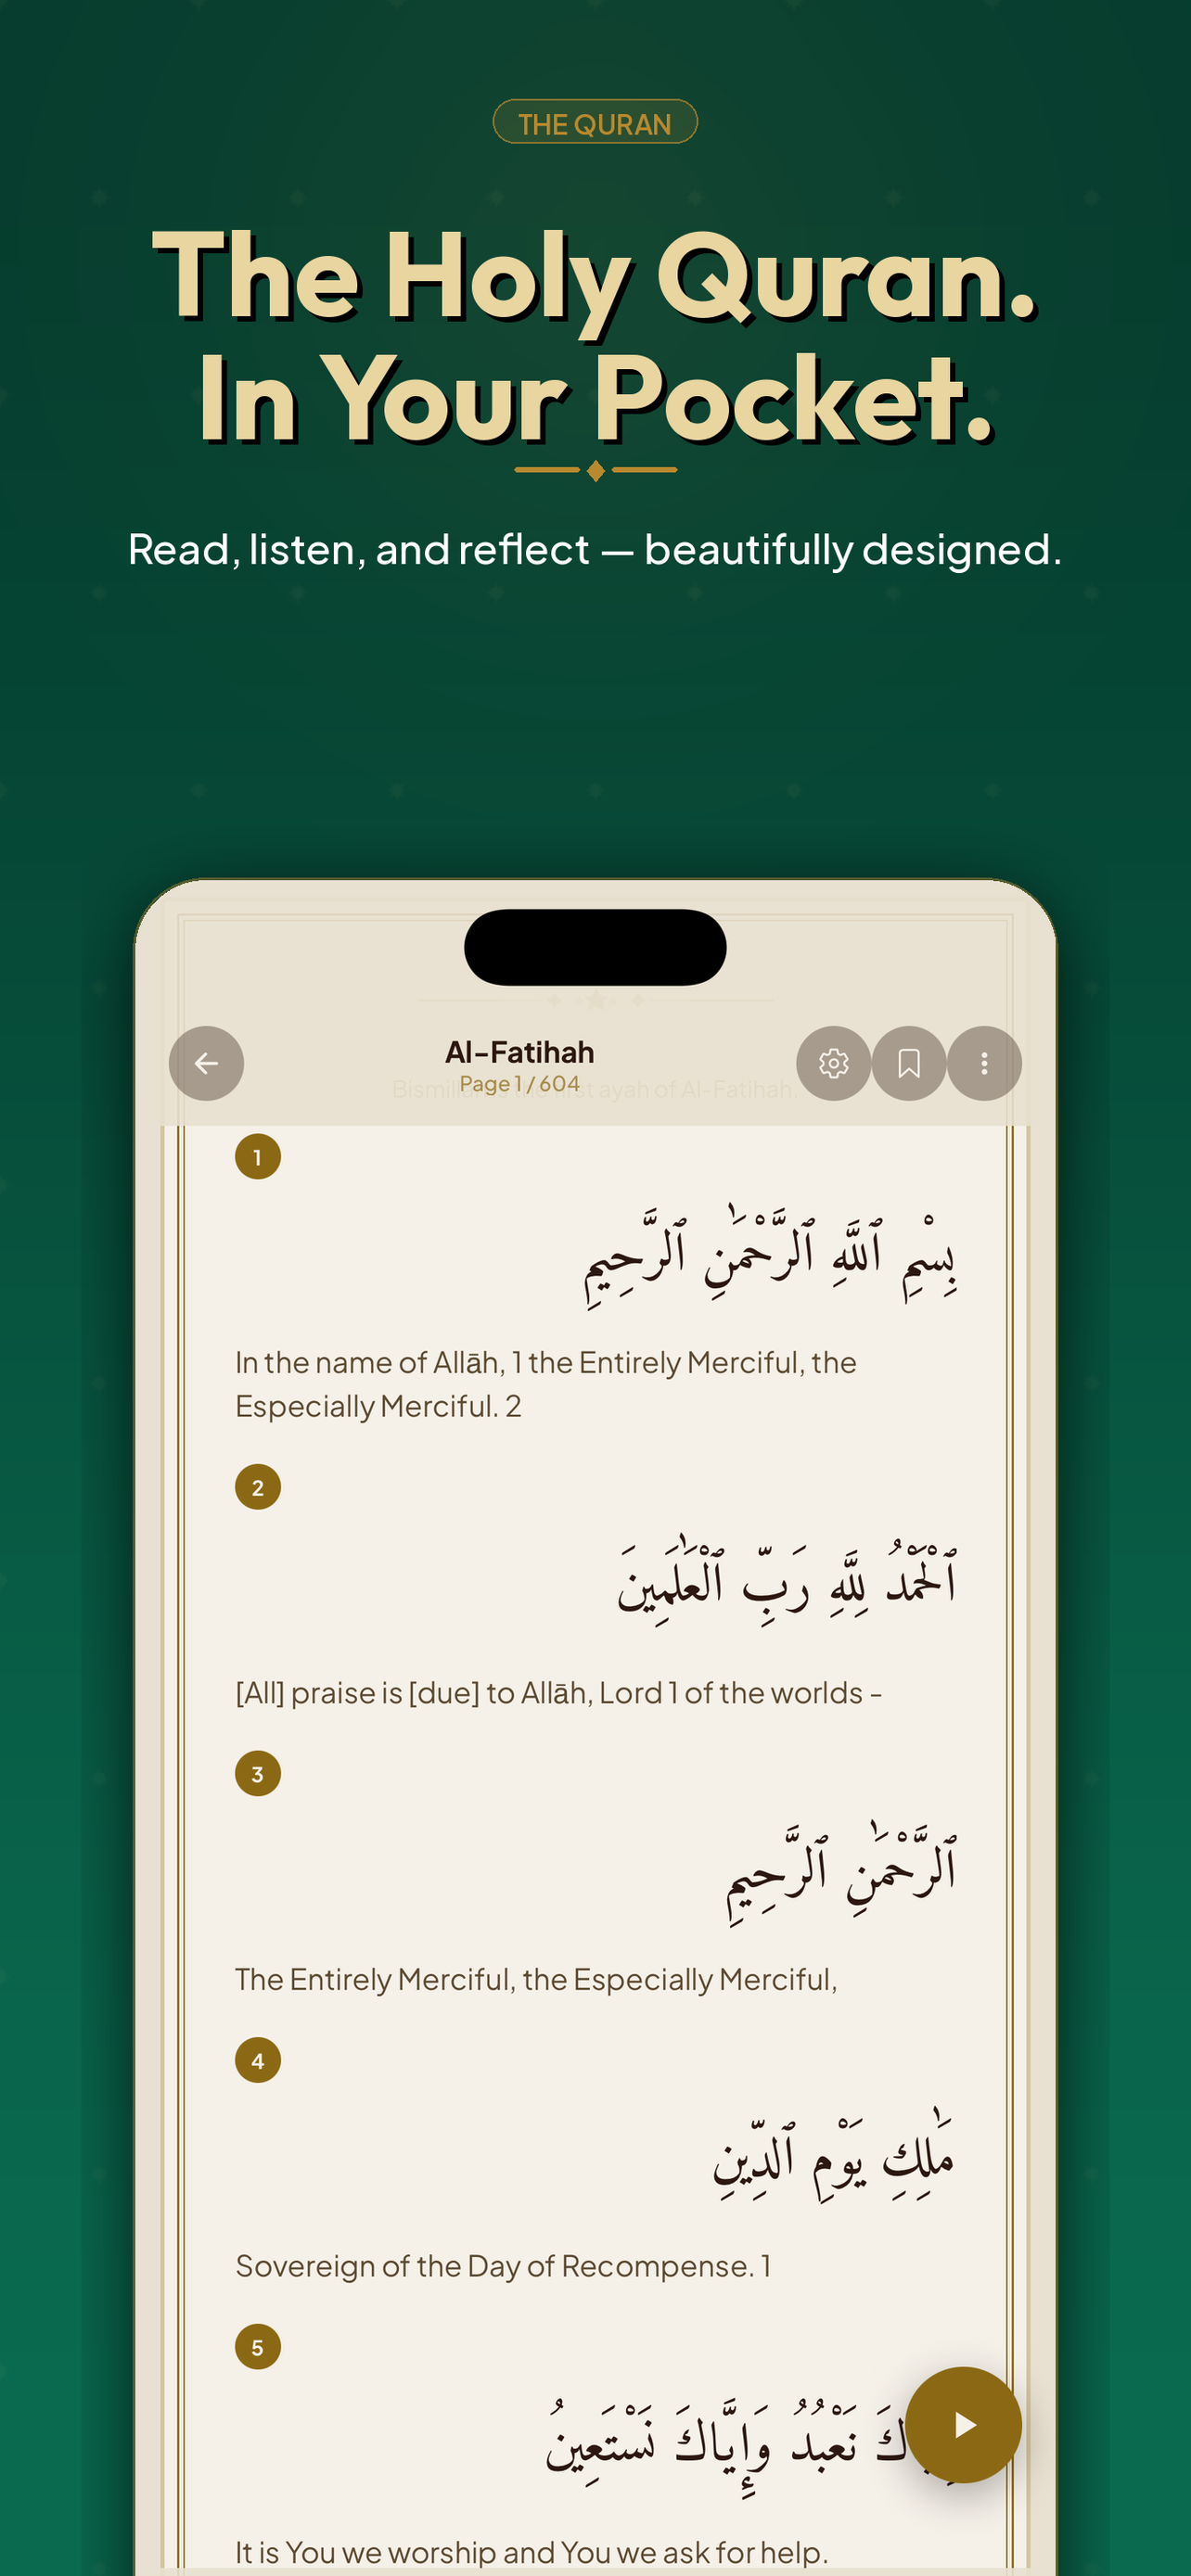 THE QURAN
The Holy Quran.
In Your Pocket.
Read, listen, and reflect — beautifully designed.
Al-Fatihah
Page 1 / 604
Bismillah is the first ayah of Al-Fatihah.
1
بِسْمِ ٱللَّهِ ٱلرَّحْمَـٰنِ ٱلرَّحِيمِ
In the name of Allāh, 1 the Entirely Merciful, the
Especially Merciful. 2
2
ٱلْحَمْدُ لِلَّهِ رَبِّ ٱلْعَـٰلَمِينَ
[All] praise is [due] to Allāh, Lord 1 of the worlds -
3
ٱلرَّحْمَـٰنِ ٱلرَّحِيمِ
The Entirely Merciful, the Especially Merciful,
4
مَـٰلِكِ يَوْمِ ٱلدِّينِ
Sovereign of the Day of Recompense. 1
5
نَعْبُدُ وَإِيَّاكَ نَسْتَعِينُ
It is You we worship and You we ask for help.